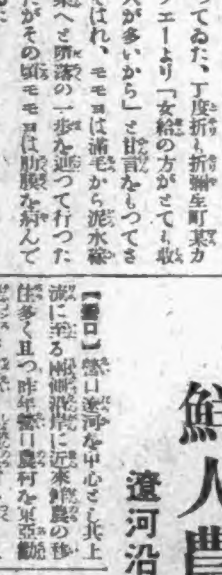 つてゐた、丁度折も折彌生町某カ
フエーより「女給の方がとても收
入が多いから」と甘言をもつてさ
そはれ、モモヨは滿毛から泥水稼
業へと墮落の一歩を辿つて行つた
だがその頃モモヨは肋膜を病んで
鮮人農
遼河沿
【營口】營口遼河を中心とし其上
流に至る兩側沿岸に近來鮮農の移
住多く且つ昨年營口農村を東亞勸